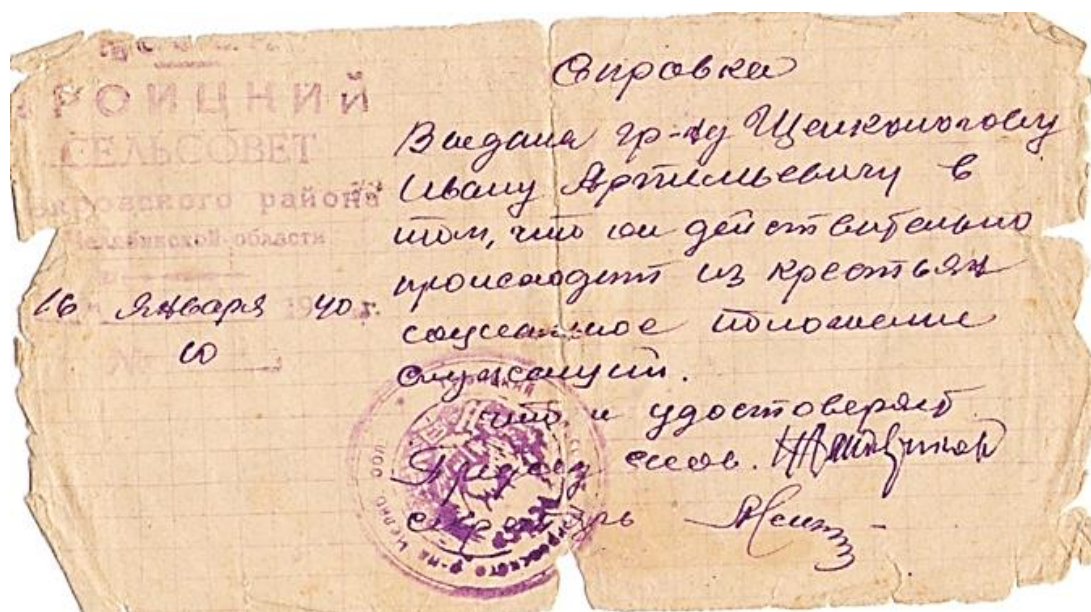 ТРОИЦКИЙ
СЕЛЬСОВЕТ
района
Челябинской области
16 Января 1940 г.
№ 10
Справка
Выдана гр-ну Щелконогову
Ивану Артемьевичу в
том, что он действительно
происходит из крестьян
социальное положение
служащий.
что и удостоверяет
Пред. с/сов.
секретарь